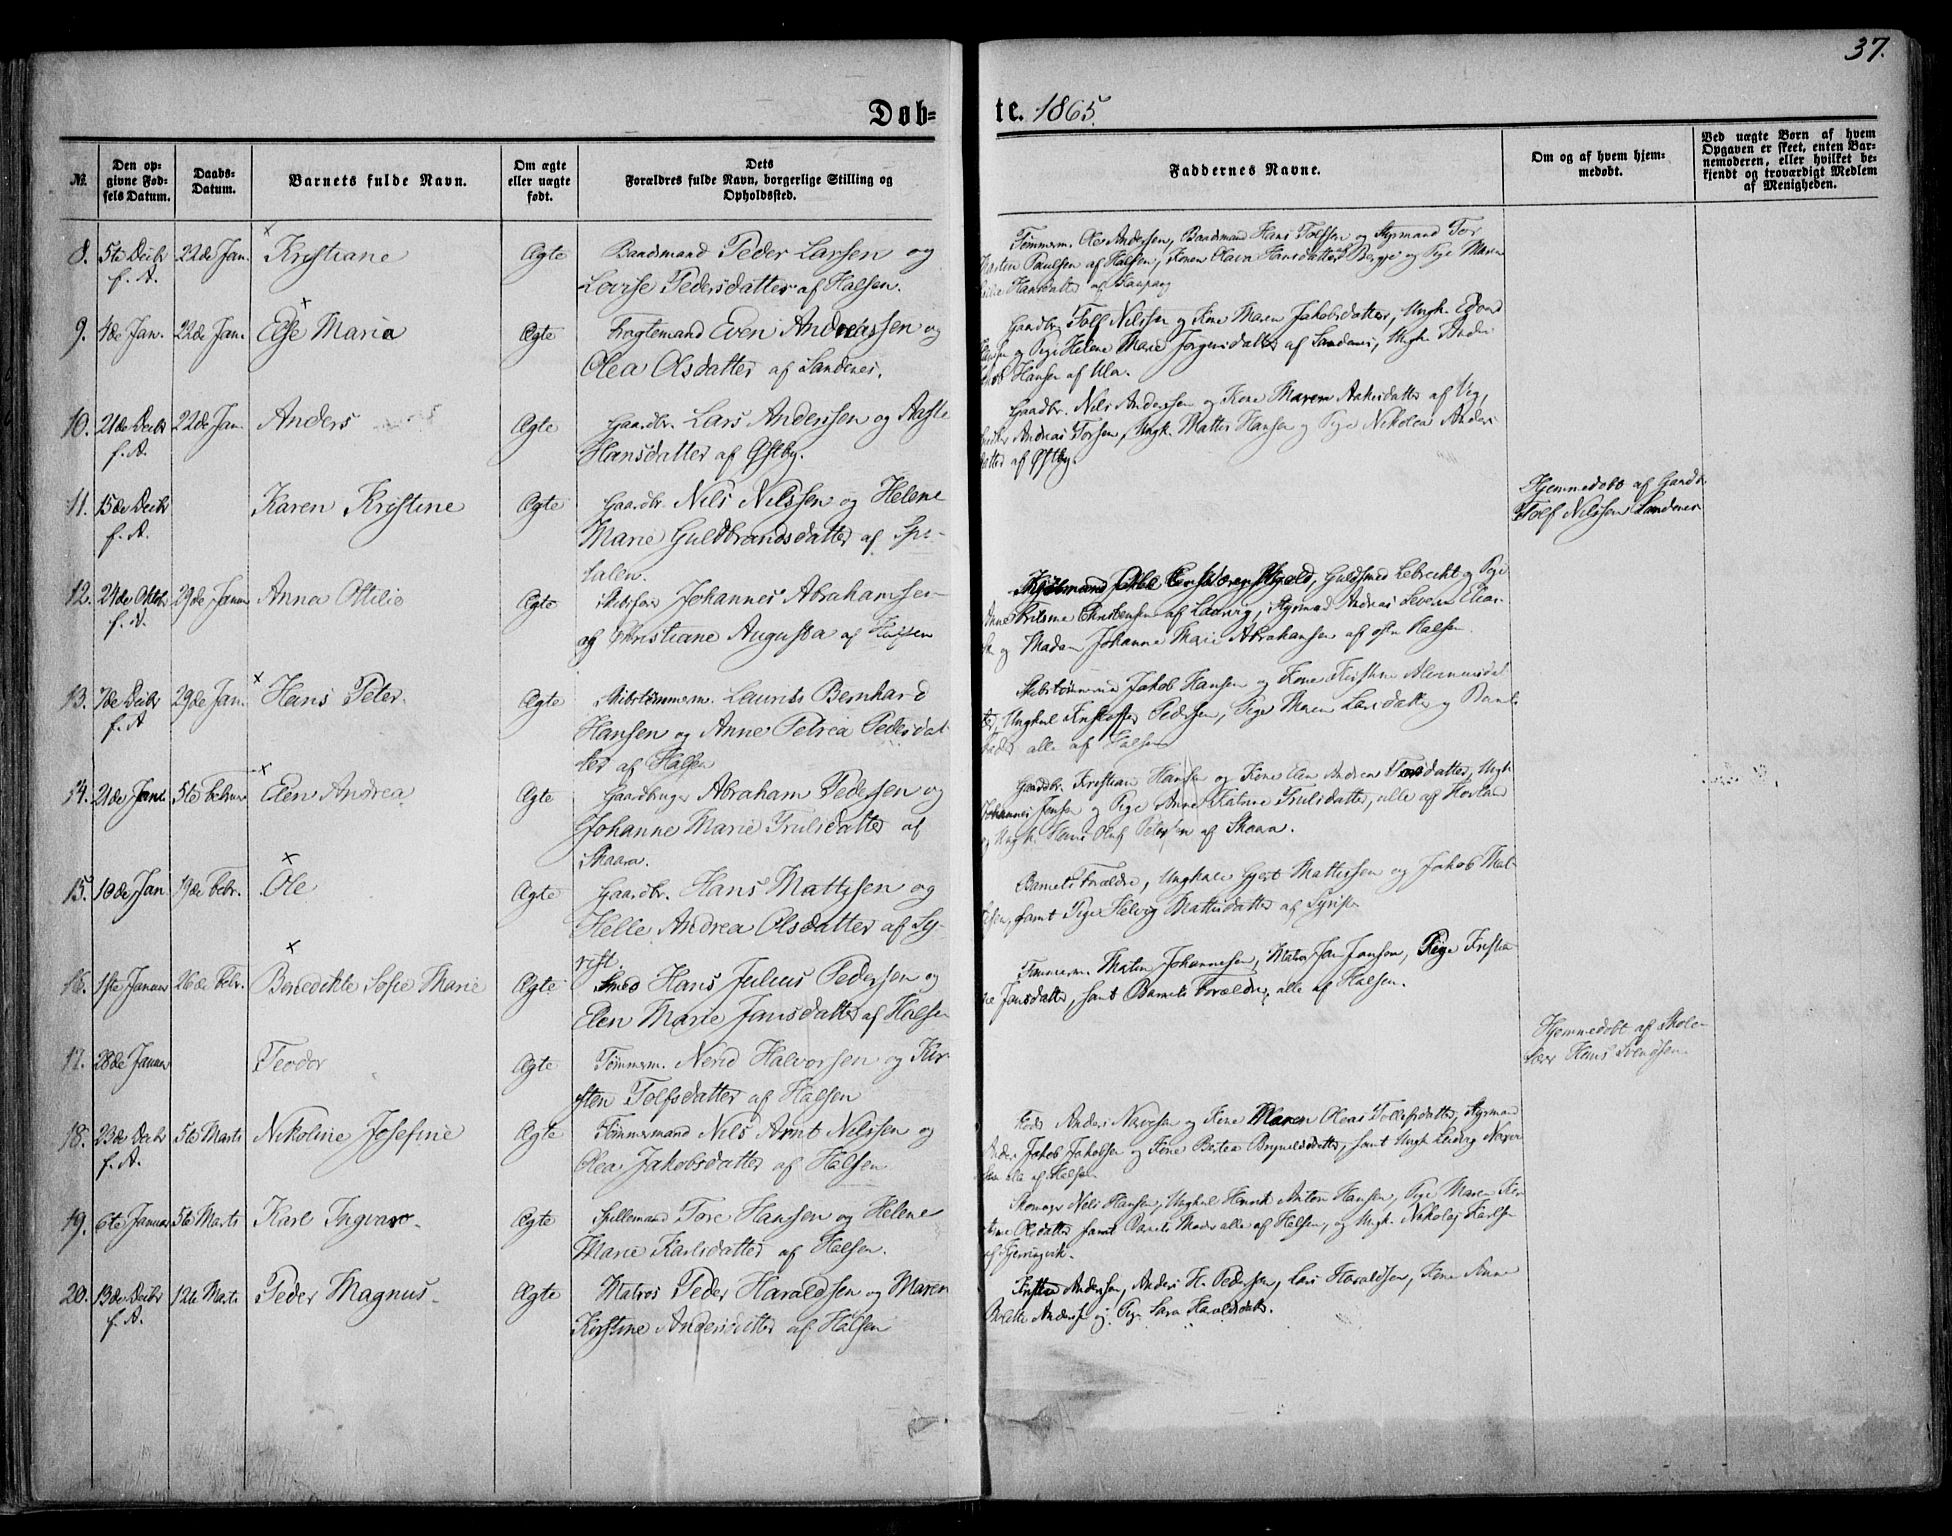 37.
Døb= te. 1865.
№.
Den op-
givne Fød-
sels Datum.
Daabs-
Datum.
Barnets fulde Navn.
Om ægte
eller uægte
født.
Dets
Forældres fulde Navn, borgerlige Stilling og
Opholdssted.
Faddernes Navne.
Om og af hvem hjem-
medøbt.
Ved uægte Børn af hvem
Opgaven er skeet, enten Bar-
nemoderen, eller hvilket be-
kjendt og troværdigt Medlem
af Menigheden.
8. 5te Decbr 22de Jan. Kristiane Ægte Baadsmand Peder Larsen og
f. A. Lovise Pedersdatter af Halsen.
Tømmerm. Ole Andersen, Baadsmand Hans Tolfsen og Styrmand Tor
Paulsen af Halsen, Konen Hansdatter Bergge og Pige Maren
Hansdatter af Kaupang
9. 4de Jan. 22de Jan. Else Maria Ægte Even Andreassen og
Olea Olsdatter af Sandenes.
Gaardbr. Tolf Nilssen og Kone Maren Jakobsdatter, Ungk. Edvard
og Pige Helene Marie Jørgensdatter af Sandenes, Ungk.
Hansen af Ula.
10. 21de Decbr 22de Jan. Anders Ægte Gaardbr. Lars Anderssen og Aaste
f. A. Hansdatter af Østby.
Gaardbr. Nils Anderssen og Kone Maren Aakesdatter af Vig,
Andreas Torsen, Ungk. Mattis Hansen og Pige Nikolea Anders
datter af Østby.
11. 15de Decbr Karen Kristine Ægte Gaardbr. Nils Nilssen og Helene
f. A. Marie Guldbrandsdatter af Spi-
talen.
Hjemmedøbt af Gaardbr
Tolf Nilssen Sandenes
12. 24de Oktbr 29de Januar Anna Ottilie Ægte Skibsfører Johannes Abrahamsen
f. A. og Kristiane Augusta af Halsen
Guldsmed Lebrecht og Pige
Christensen af Laurvig, Styrmand Andreas Severin Elias-
og Madam Johanne Marie Abrahamsen af østre Halsen.
13. 7de Decbr 29de Jan. Hans Peter. Ægte Skibstømmerm. Laurits Bernhard
f. A Hansen og Anne Petrea Pedersdat-
ter af Halsen
Skibstømmermd Jakob Hansen og Kone Kirstine
Ungkarl Kristoffer Pedersen, Pige Maren Larsdatter og Barnets
Fader alle af Halsen
14. 21de Janr 5te Februar Elen Andrea Ægte Gaardbruger Abraham Pedersen og
Johanne Marie Trulsdatter af
Skaara.
Gaardbr. Kristian Hansen og Kone Elen Andrea datter, Ungk
Johannes Jensen og Pige Anne Katrine Trulsdatter, alle af Hovland
og Ungk. Hans Oluf Petersen af Skaara.
15. 10de Jan 19de Febr. Ole Ægte Gaardbr. Hans Mattisen og
Helle Andrea Olsdatter af Sy-
rist.
Barnets Forældre, Ungkarl Gjert Mattissen og Jakob Mat-
samt Pige Helvig Mattisdatter af Syrist
16. 1ste Januar 26de Febr. Benedikte Sofie Marie Ægte Smed Hans Julius Pedersen og
Elen Marie Jansdatter af Halsen
Tømmerm. Matin Johannesen, Matros Jan Janson, Pige Kristia-
ne Jansdatter, samt Barnets Forældre, alle af Halsen.
17. 28de Januar Teodor Ægte Tømmerm. Nerid Halvorsen og Kir-
sten Tolfsdatter af Halsen
Hjemmedøbt af Skole-
lærer Hans Svendsen
18. 23de Decbr 5te Marts Nikoline Josefine Ægte Tømmermand Nils Arnt Nilssen og
f. A. Olea Jakobsdatter af Halsen
Anders Navesen og Kone Maren Oleas Tollefsdatter, Styrmand
Anders Jakob Jakobsen og Kone Bertea Brynildsdatter, samt Ungk Ludvig
alle af Halsen
19. 6te Januar 5te Marts Karl Ingvard Ægte Spillemand Tore Hansen og Helene
Marie Karlsdatter af Halsen.
Skomager Nils Hansen, Ungkarl Henrik Anton Hansen, Pige Maren Kir-
stine Olsdatter samt Barnets Moder alle af Halsen, og Ungk. Nikolaj Karlsen
af Kjerringvik.
20. 13de Decbr 12te Marts Peder Magnus Ægte Matros Peder Haraldsen og Maren
f. A. Kirstine Andersdatter af Halsen
Kristian Andersen, Anders H. Pedersen, Lars Haraldsen, Kone Anne
Berette Anders og Pige Sara Haraldsdatter.